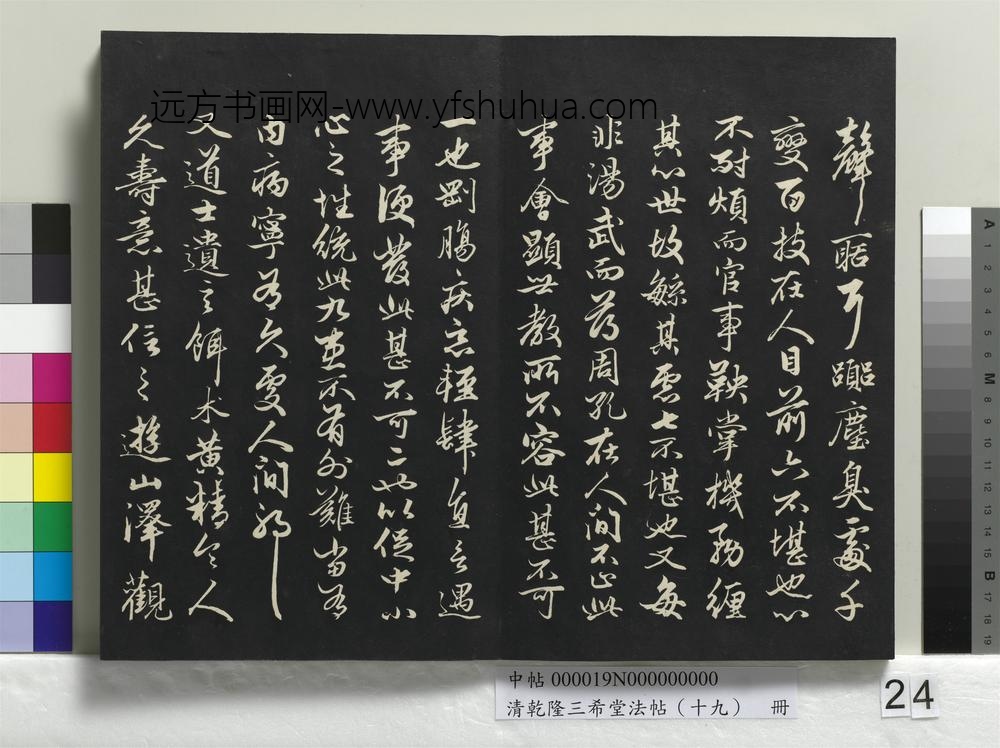 聲聒耳囂塵臭處千
變百技在人目前六不堪也心
不耐煩而官事鞅掌機務纏
其心世故緐其慮七不堪也又每
非湯武而薄周孔在人間不止此
事會顯世教所不容此甚不可
一也剛腸疾惡輕肆直言遇
事便發此甚不可二也以促中小
心之性統此九患不有外難當有
內病寧有久處人間邪
又道士遺言餌朮黃精令人
久壽意甚信之遊山澤觀
远方书画网-www.yfshuhua.com
中帖 000019N000000000
清乾隆三希堂法帖（十九） 冊
24
A 1 2 3 4 5 6 M 8 9 10 11 12 13 14 15 B 17 18 19